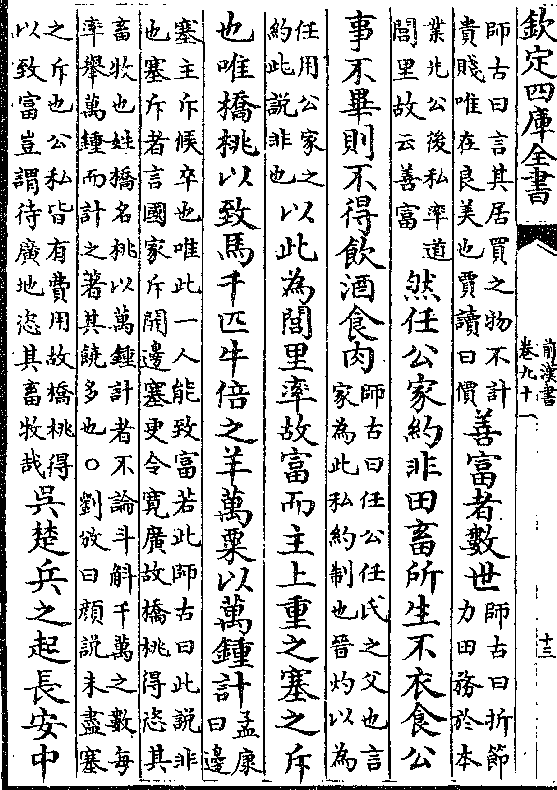 欽定四庫全書
前漢書
卷九十一
十三
師古曰言其居買之物不計
貴賤唯在良美也賈讀曰價
善富者數世
師古曰折節
力田務於本
業先公後私率道
閭里故云善富
然任公家約非田畜所生不衣食公
事不畢則不得飲酒食肉
師古曰任公任氏之父也言
家為此私約制也晉灼以為
任用公家之
約此説非也
以此為閭里率故富而主上重之塞之斥
也唯橋桃以致馬千匹牛倍之羊萬粟以萬鍾計
孟康
曰邊
塞主斥候卒也唯此一人能致富若此師古曰此説非
也塞斥者言國家斥開邊塞更令寛廣故橋桃得恣其
畜牧也姓橋名桃以萬鍾計者不論斗斛千萬之數每
率舉萬鍾而計之著其饒多也○劉攽曰顔説未盡塞
之斥也公私皆有費用故橋桃得
以致富豈謂待廣地恣其畜牧哉
吳楚兵之起長安中